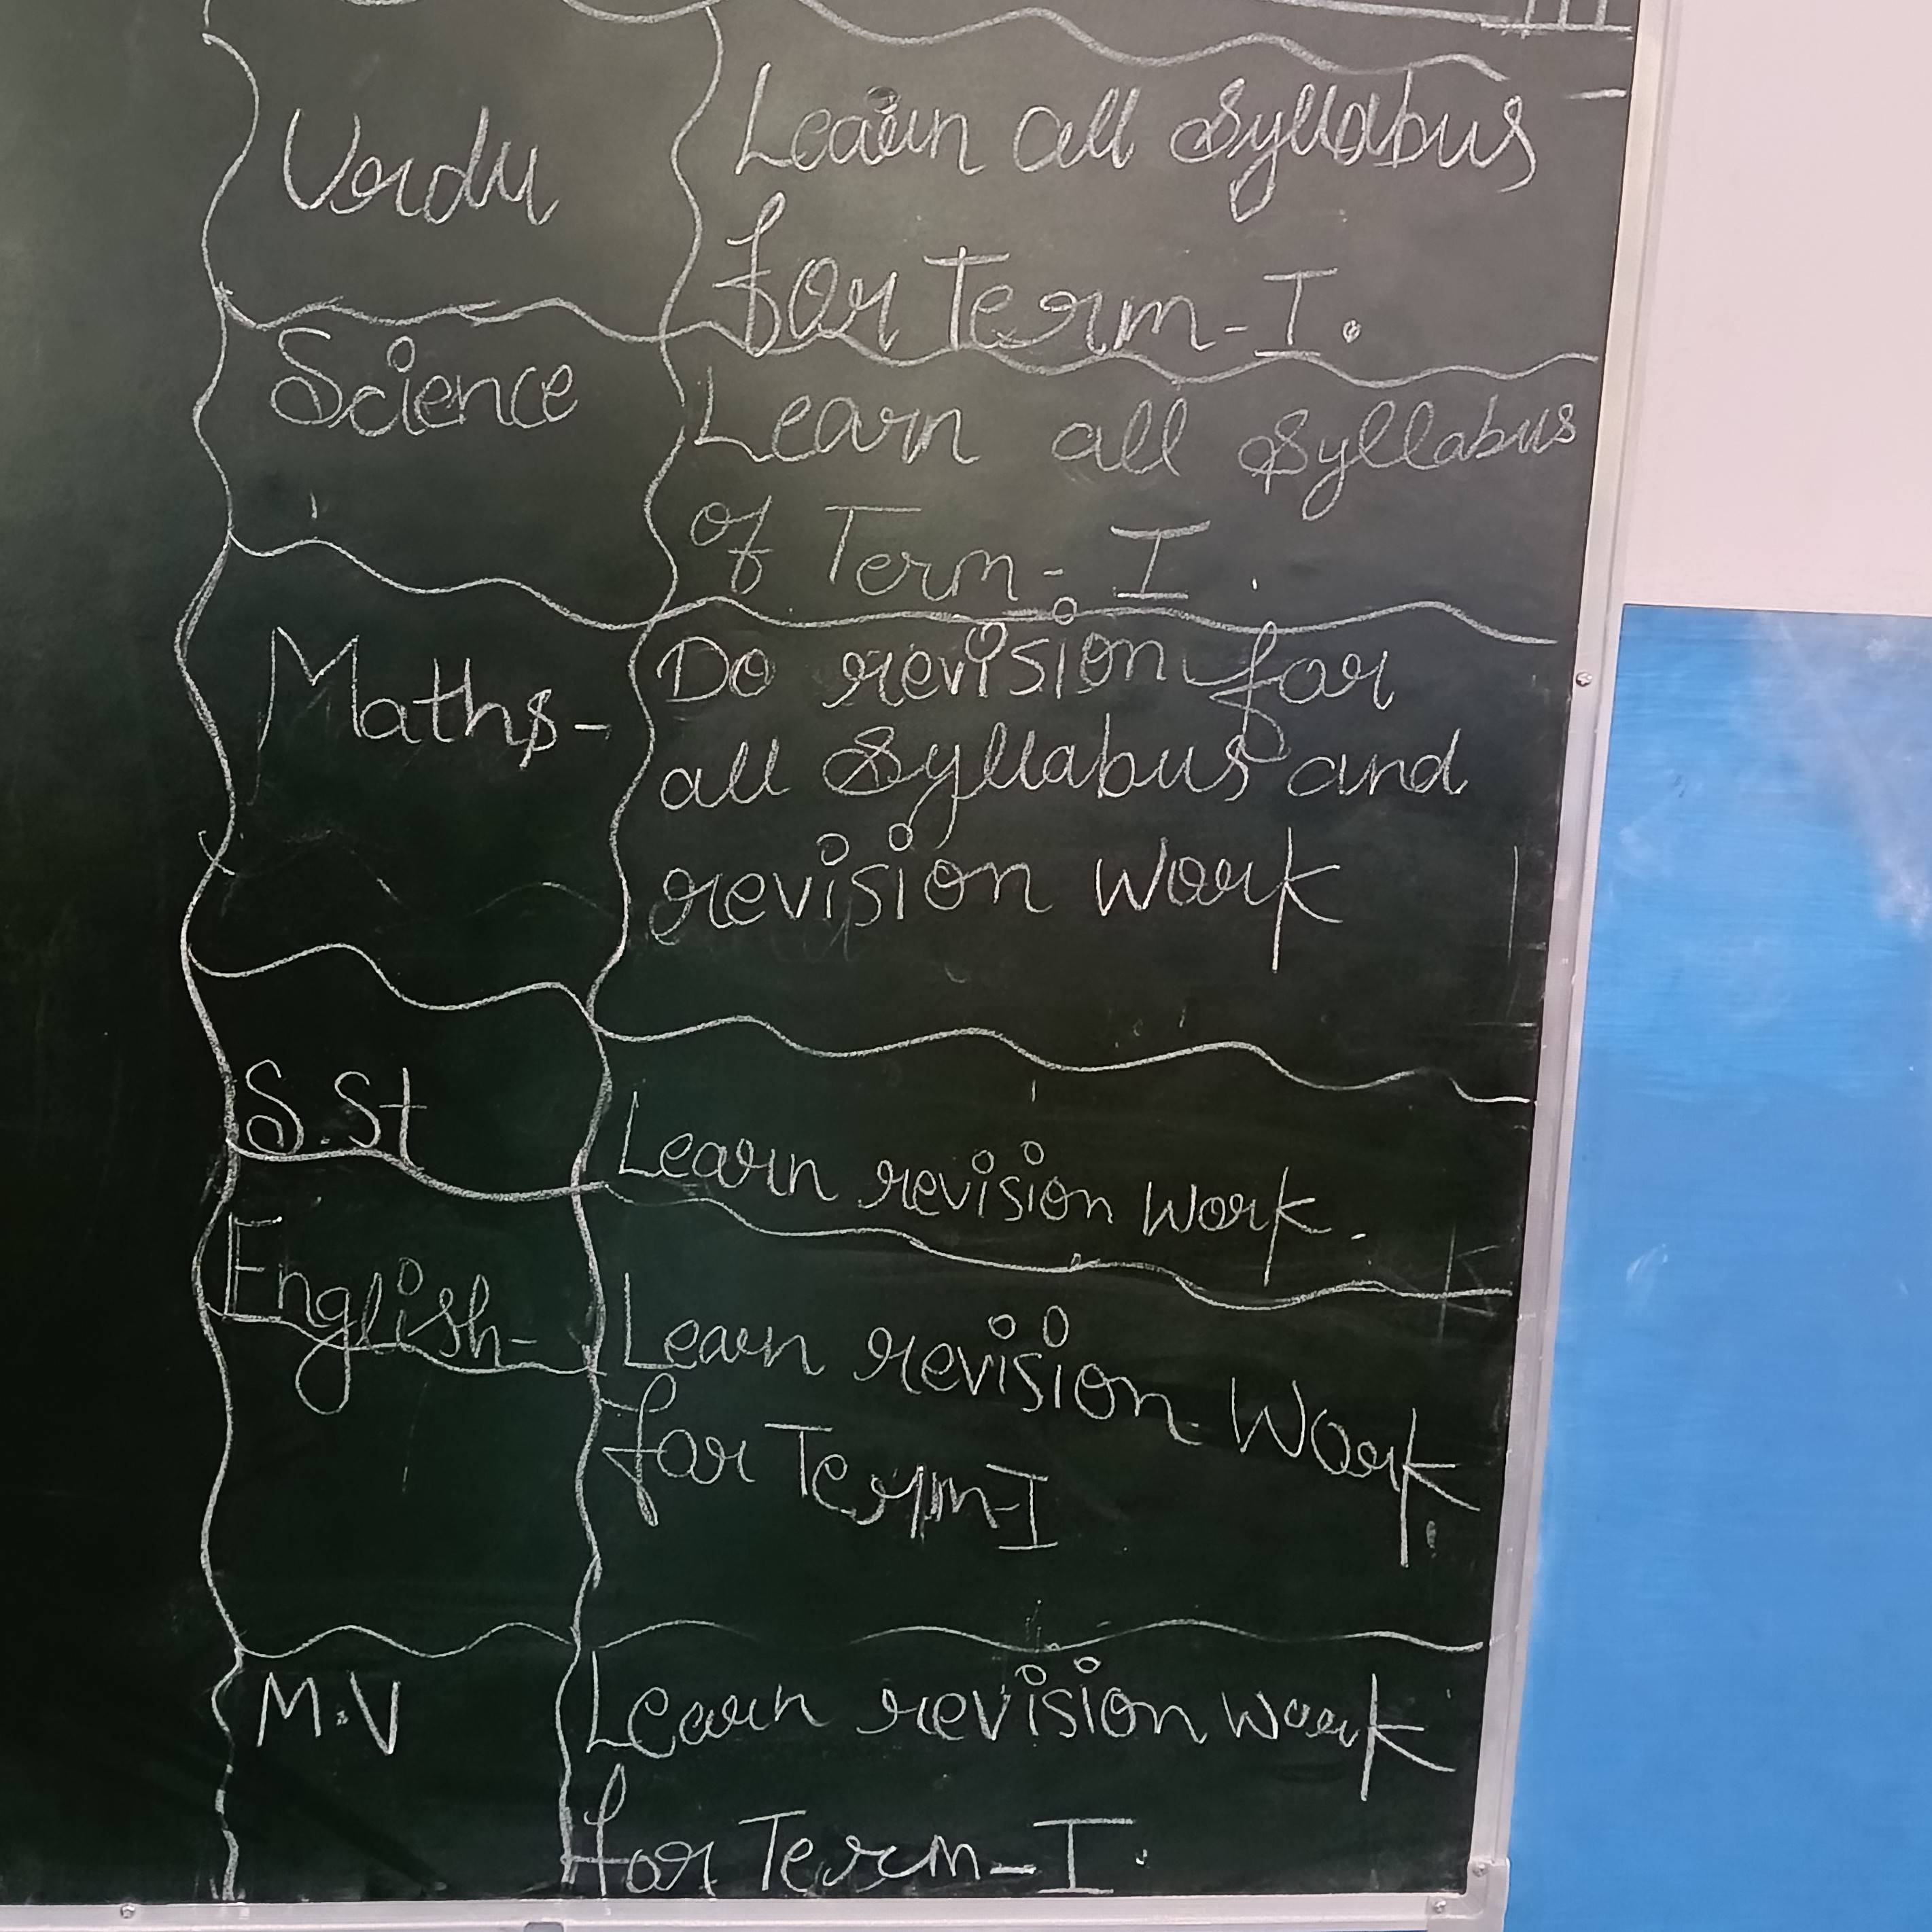 Uordu
Learn all Syllabus
for Term-I.
Science
Learn all Syllabus
of Term-I.
Maths-
Do revision for
all Syllabus and
revision work
S.St
Learn revision work.
English-
Learn revision Work.
for Term-I
M.V
Learn revision work
for Term-I.